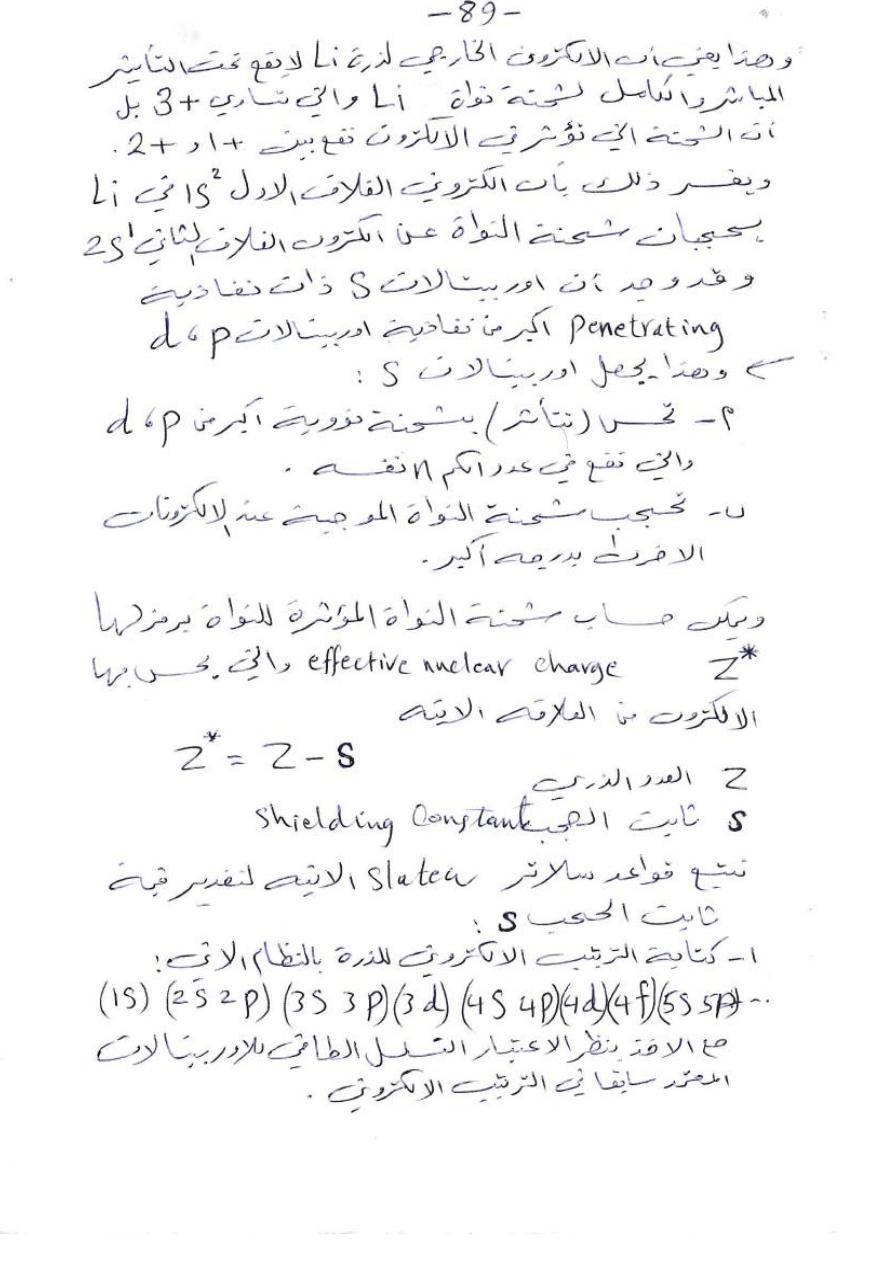 -89-
وهذا يعني أن الالكترون الخارجي لذرة Li لا يقع تحت التأثير
المباشر والكامل لشحنة نواة Li والتي تساوي +3 بل
أن الشحنة التي تؤثر في الالكترون تقع بين +1 و +2.
ويفسر ذلك بأن الكتروني الغلاف الاول 1S² في Li
يحجبان شحنة النواة عن الكترون الغلاف الثاني 2S¹
وقد وجد أن اوربيتالات S ذات نفاذية
Penetrating اكبر من نفاذية اوربيتالات p ، d
← وهذا يجعل اوربيتالات S :
أ- تحس (تتأثر) بشحنة نووية أكبر من p ، d
والتي تقع في عدد الكم n نفسه .
ب- تحجب شحنة النواة الموجبة عن الالكترونات
الاخرى بدرجه أكبر.
ويمكن حساب شحنة النواة المؤثرة للنواة يرمز لها
Z* effective nuclear charge والتي يحس بها
الالكترون من العلاقه الاتيه
Z* = Z - S
Z العدد الذري
S ثابت الحجب Shielding Constant
نتبع قواعد سلاتر Slater الاتيه لتقدير قيمة
ثابت الحجب S :
1- كتابة الترتيب الالكتروني للذرة بالنظام الاتي:
(1S) (2S 2p) (3S 3p)(3d) (4S 4p)(4d)(4f)(5S 5p)...
مع الاخذ بنظر الاعتبار التسلسل الطاقي للاوربيتالات
المعتمد سابقا في الترتيب الالكتروني .